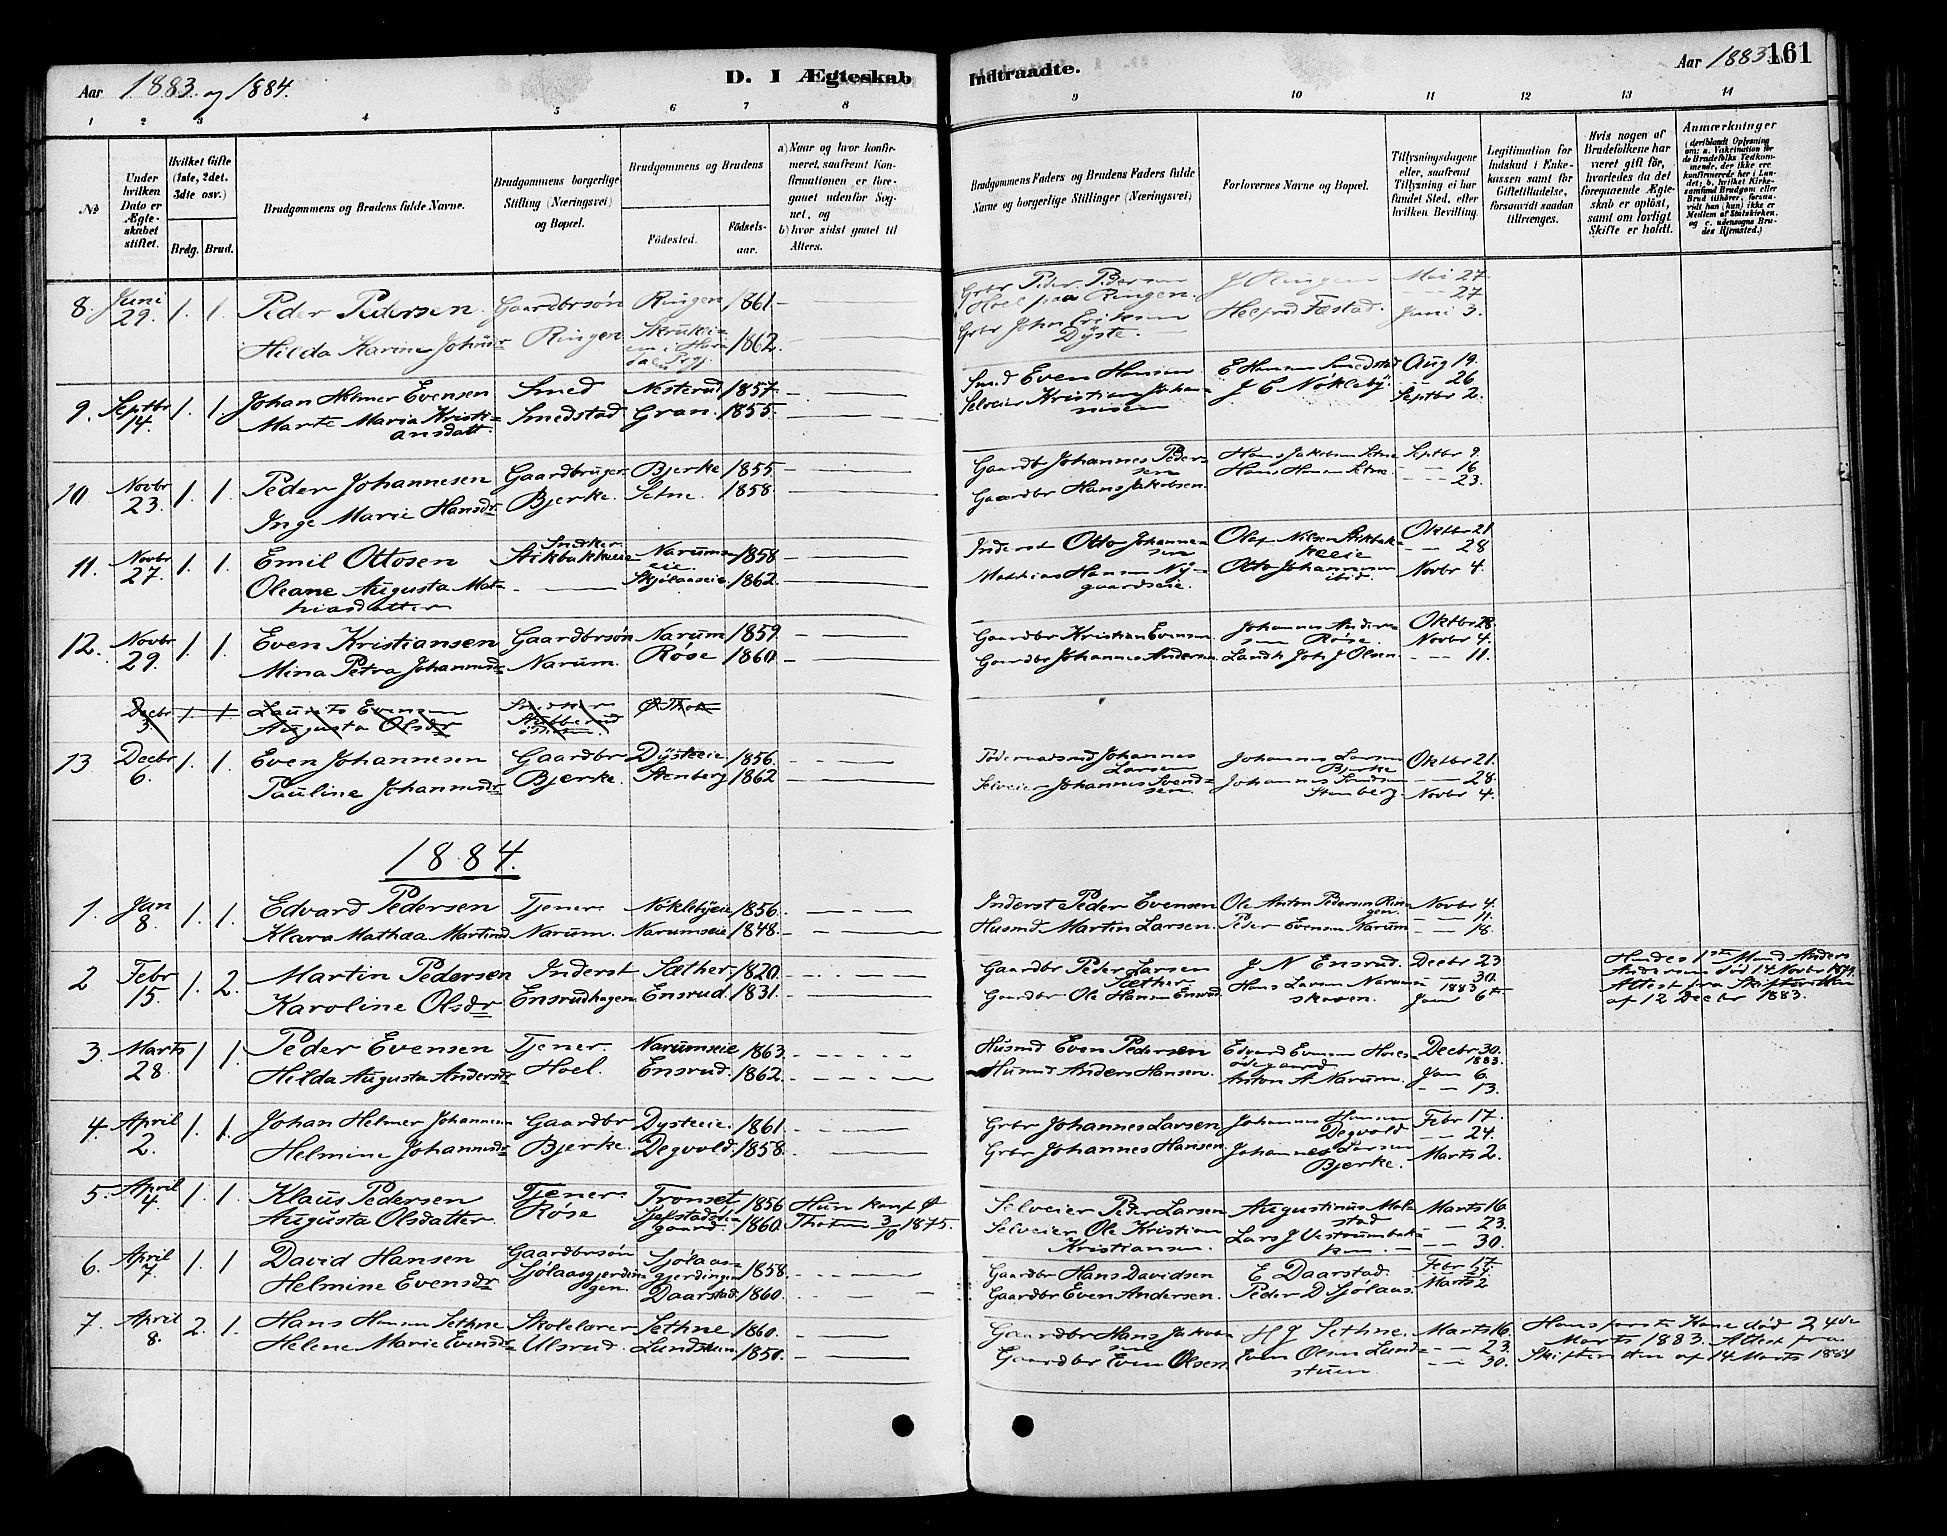 Aar 1883 og 1884.
D. I Ægteskab
Indtraadte.
Aar 1883
161
1 2 3 4 5 6 7 8 9 10 11 12 13 14
№
Under hvilken Dato er Ægteskabet stiftet.
Hvilket Gifte (1ste, 2det, 3die osv.)
Brdg. Brud.
Brudgommens og Brudens fulde Navne.
Brudgommens borgerlige Stilling (Næringsvei) og Bopæl.
Brudgommens og Brudens
Födested.
Födselsaar.
a) Naar og hvor konfirmeret, saafremt Konfirmationen er foregaaet udenfor Sognet, og
b) hvor sidst gaaet til Alters.
Brudgommens Faders og Brudens Faders fulde Navne og borgerlige Stillinger (Næringsvei)
Forlovernes Navne og Bopæl.
Tillysningsdagene eller, saafremt Tillysning ei har fundet Sted, efter hvilken Bevilling.
Legitimation for Indskud i Enkekassen samt for Giftetilladelse, forsaavidt saadan tiltrænges.
Hvis nogen af Brudefolkene har været gift før, hvorledes da det foregaaende Ægteskab er oplöst, samt om lovligt Skifte er holdt.
Anmærkninger
(deriblandt Oplysning om: a. Vakcination for de Brudefolks Vedkommende, der ikke ere konfirmerede her i Landet; b. hvilket Kirkesamfund Brudgom eller Brud tilhörer, forsaavidt han (hun) ikke er Medlem af Statskirken, og c. udensogns Brudes Hjemsted.)
8. Juni 29. 1. 1. Peder Pedersen Gaardbrsøn Ringen 1861 Grbr Peder Pedersen J Ringen Mai 27
Hoel paa Ringen. - - 27
Hilda Karine Johnsdr Ringen 1862. Grbr John Eriksen Dyste. Helfred Fæstad. Juni 3.
9. Septbr 14. 1. 1. Johan Helmer Evensen Smed Nesterud 1857 Smed Even Hansen E Hansen Smedstad Aug 19.
- - 26
Marte Maria Kristiansdatt. Smedstad Gran. 1855. Selveier Kristian Johannesen J E Nøkleby. Septbr 2.
10 Novbr 23. 1. 1. Peder Johannesen Gaardbruger Bjerke 1855 Gaardbr Johannes Pedersen Hans Jakobsen Setne Septbr 9.
Hans Hansen Setne - - 16
Inge Marie Hansdr Bjerke. Setne. 1858. Gaardbr Hans Jakobsen. - - 23.
11. Novbr 27. 1. 1. Emil Ottosen Snedker Stikbakkeeie Narumseie. 1858 Inderst Otto Johannesen Olaf Nilsen Stikbakkeeie Oktbr 21.
- - 28
Oleane Augusta Mathiasdatter Skjølaaseie 1862. Mathias Hansen Nygaardseie. Otto Johannesen ibid. Novbr 4.
12. Novbr 29. 1. 1. Even Kristiansen Gaardbrsøn Narum 1859. Gaardbr Kristian Evensen Johannes Andersen Røse. Oktbr 28.
Novbr 4.
Mina Petra Johannesdr Narum. Røse 1860 Gaardbr Johannes Andersen. Landh Joh J Olsen - - 11.
Decbr 3. 1. 1. Laurits Evensen Snedker Ø. Thoten
Augusta Olsdr Stubberud
13 Decbr 6. 1. 1. Even Johannesen Gaardbr Dysteeie 1856. Föderaadsmd Johannes Larsen Johannes Larsen Bjerke Oktbr 21.
- - 28.
Pauline Johannesdr Bjerke. Stenberg 1862 Selveier Johannes Svendsen. Johannes Svendsen Stenberg. Novbr 4.
1884.
1. Jan 8. 1. 1. Edvard Pedersen Tjener Nøklebyeie 1856. Inderst Peder Evensen Ole Anton Pedersen Ringen. Novbr 4.
- - 11.
Klara Mathea Martinsd Narum. Narumseie 1848. Husmd Martin Larsen. Peder Evensen Narum - - 18.
2 Febr 15. 1. 2. Martin Pedersen Inderst Sæther. 1820. Gaardbr Peder Larsen Sæther J N Ensrud. Decbr 23 Hendes 1ste Mand Anders
- - 30. 1883 Andersen död 14 Novbr 1879.
Karoline Olsdr Ensrudhagen. Ensrud. 1831. Gaardbr Ole Hansen Ensrud. Hans Larsen Narumskoven. Jan 6te Attest fra Skifteretten
af 12 Decbr 1883.
3. Marts 28. 1 1. Peder Evensen Tjener Narumseie 1863. Husmd Even Pedersen Edvard Evensen Hoelsødegaard Decbr 30. 1883.
Hilda Augusta Andersdr Hoel. Ensrud. 1862. Husmd Anders Hansen. Anton A Narum. Jan 6.
- - 13.
4. April 2. 1. 1. Johan Helmer Johannesen Gaardbr Dysteeie 1861. Grbr Johannes Larsen Johannes Hansen Degvold Febr 17.
- - 24.
Helmine Johannesdr Bjerke. Degvold. 1858. Grbr Johannes Hansen. Johannes Larsen Bjerke. Marts 2.
5. April 4. 1. 1. Klaus Pedersen Tjener Tronset 1856 Hun konf Ø Selveier Peder Larsen Augustinus Molstad Marts 16.
- - 23.
Augusta Olsdatter Røse 1860. Thoten 3/10 1875. Selveier Ole Kristian Kristiansen. Lars J Vestrumbakken. - - 30.
6. April 7. 1. 1 David Hansen Gaardbrsøn Sjølaasgjerdingen 1858. Gaardbr Hans Davidsen E Daarstad. Febr 17
24.
Helmine Evensdr Sjølaasgjerdingen. Daarstad. 1860. Gaardbr Even Andersen. Peder D Sjølaas. Marts 2
7. April 8. 2. 1. Hans Hansen Sethne Skolelærer Sethne 1860. Gaardbr Hans Jakobsen H J Sethne. Marts 16. Hans første Kone död 24de
- - 23. Marts 1883. Attest fra
Helene Marie Evensdr Ulsrud. Lundstuen 1850. Gaardbr Even Olsen. Even Olsen Lundstuen - - 30. Skifteretten af 14 Marts 1884